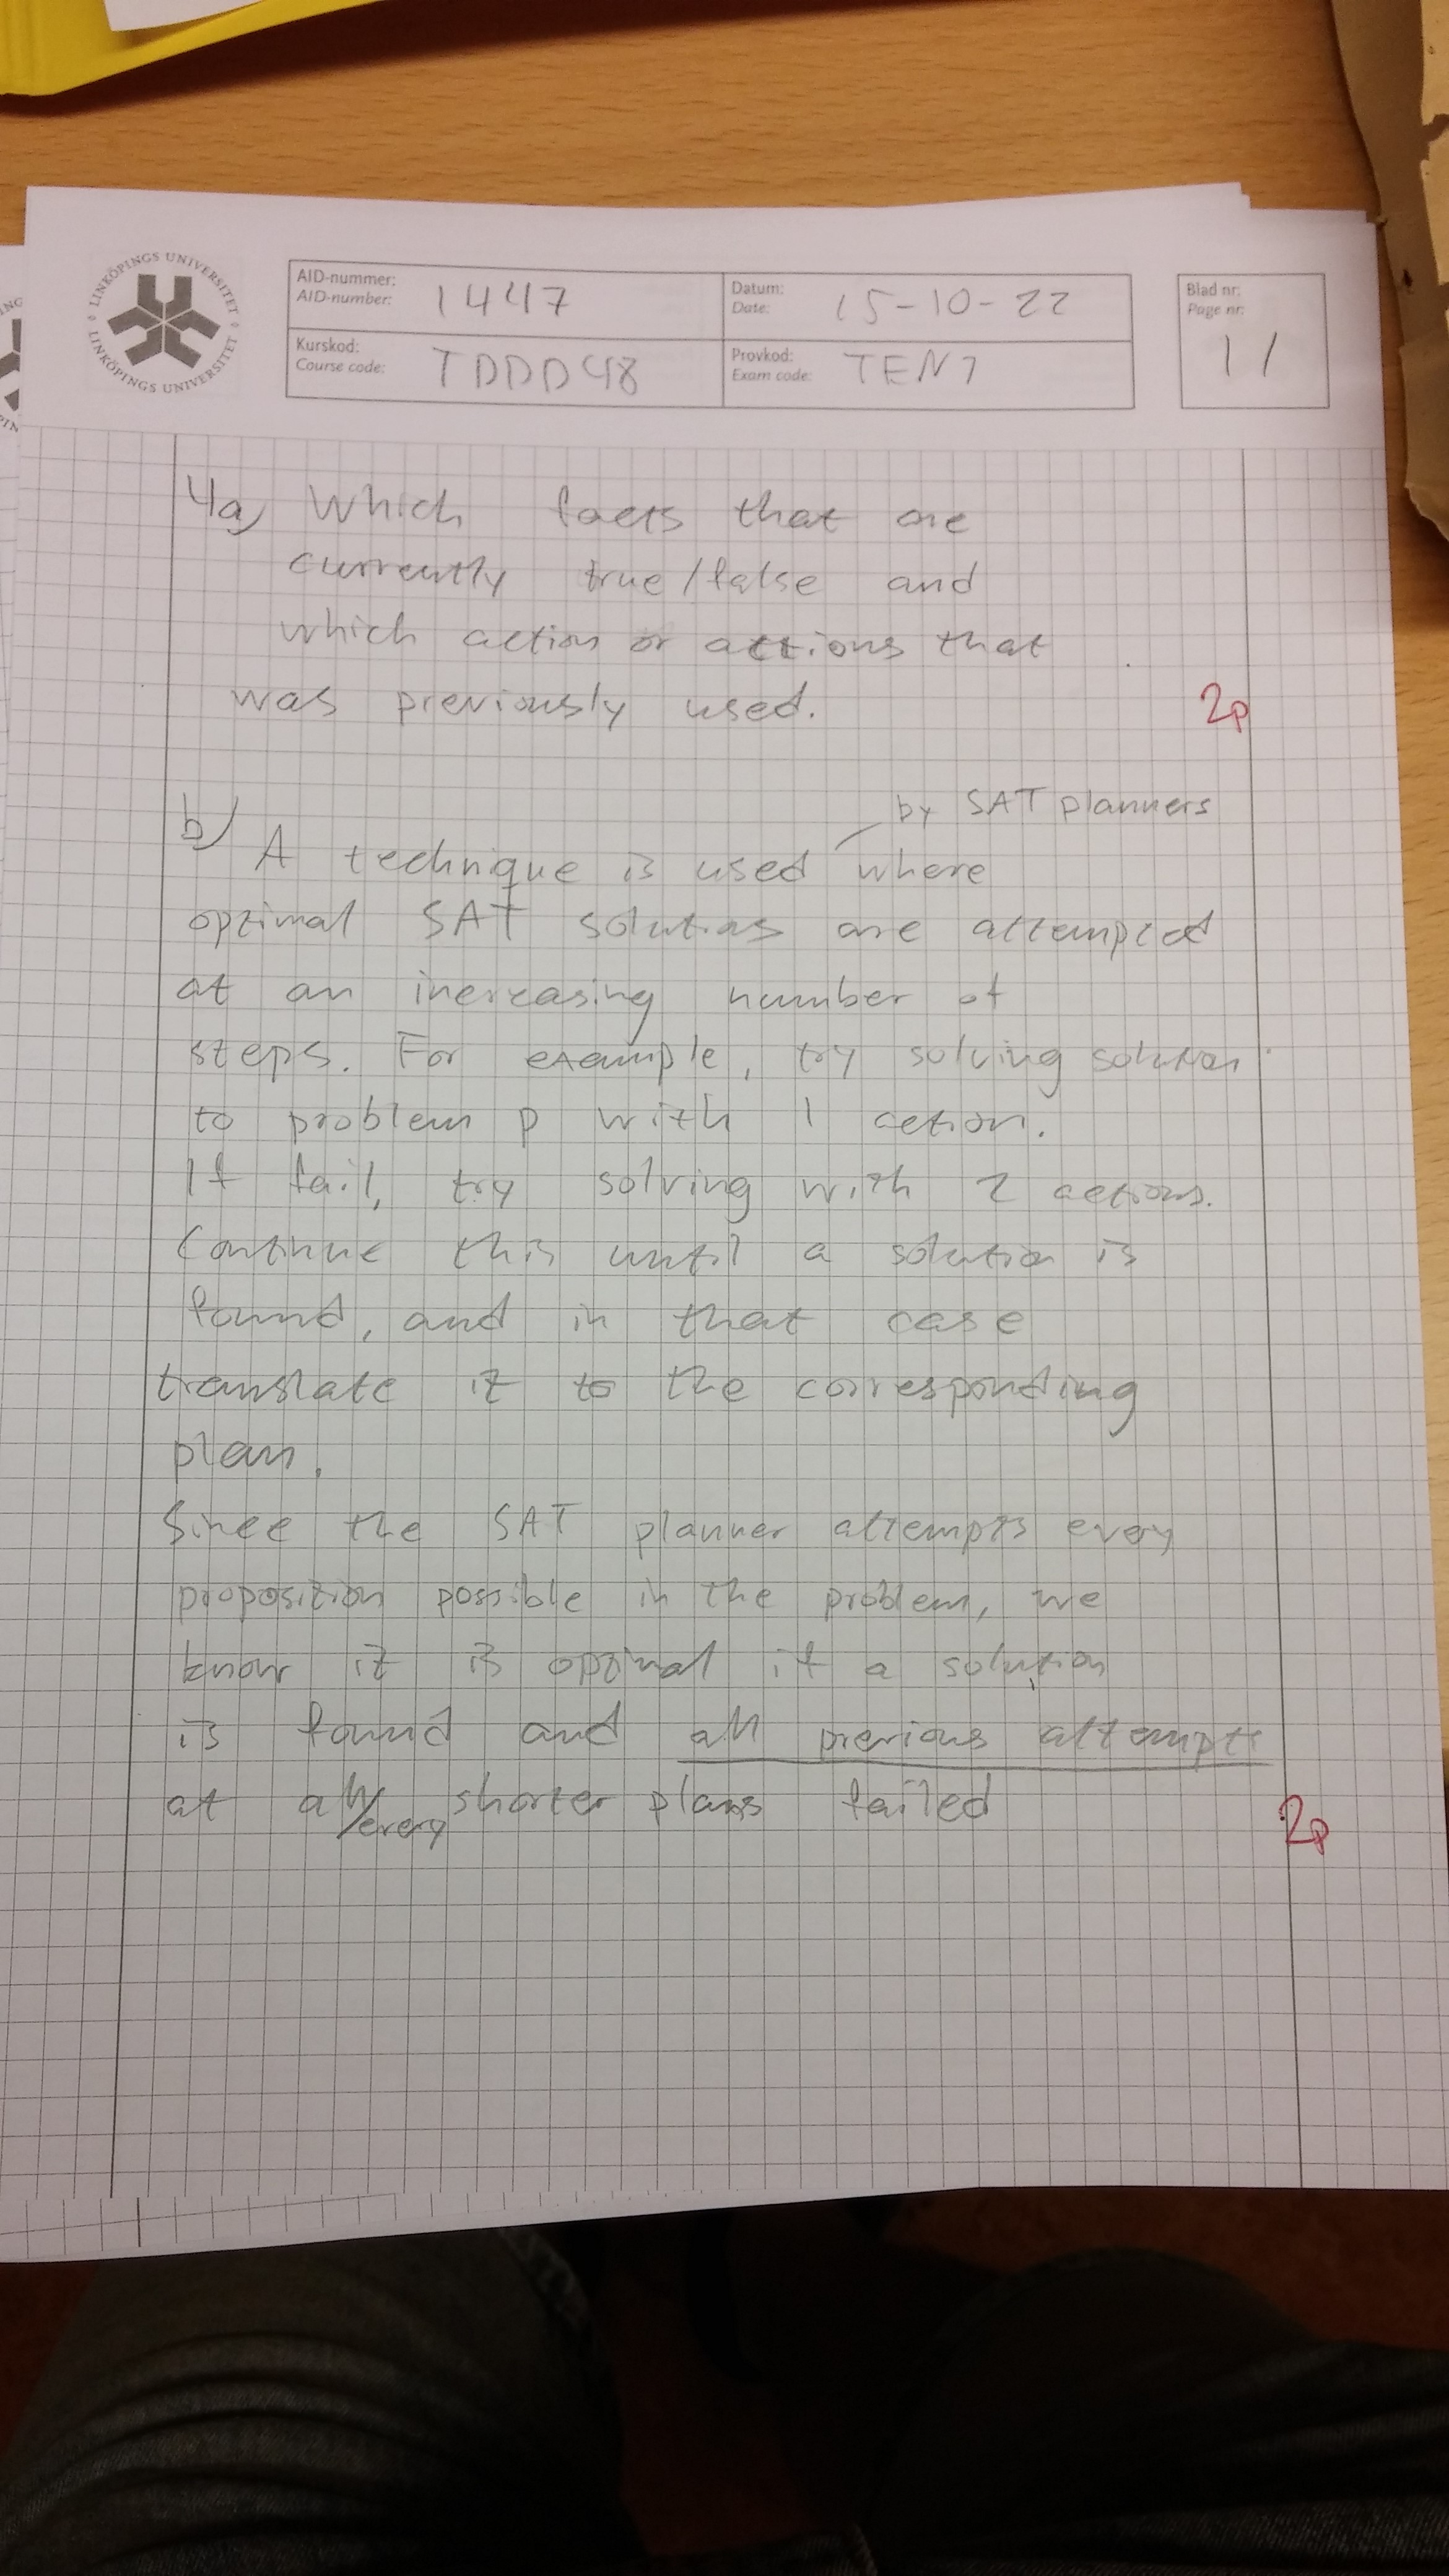 LINKÖPINGS UNIVERSITET
LINKÖPINGS UNIVERSITET
AID-nummer:
AID-number:
1447
Datum:
Date:
15-10-22
Blad nr:
Page nr:
11
Kurskod:
Course code:
TDDD48
Provkod:
Exam code:
TEN1
4a) Which facts that are
currently true/false and
which action or actions that
was previously used.
2p
by SAT planners
b) A technique is used where
optimal SAT solutions are attempted
at an increasing number of
steps. For example, try solving solution
to problem p with 1 action.
If fail, try solving with 2 actions.
Continue this until a solution is
found, and in that case
translate it to the corresponding
plan.
Since the SAT planner attempts every
proposition possible in the problem, we
know it is optimal if a solution
is found and all previous attempts
at all/every shorter plans failed
2p